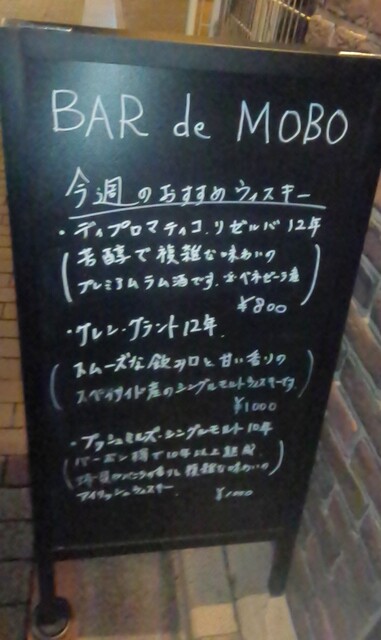 BAR de MOBO
今週のおすすめウィスキー
・ディプロマティコ.リゼルバ 12年
芳醇で複雑な味わいの
プレミアムラム酒です。ベネゼーラ産
¥800
・グレン・グラント12年.
スムーズな飲み口と甘い香りの
スペイサイド産のシングルモルトウィスキーです。
¥1000
・ブッシュミルズ・シングルモルト 10年
バーボン樽で10年以上熟成
複雑な味わいの
アイリッシュウィスキー
¥1000